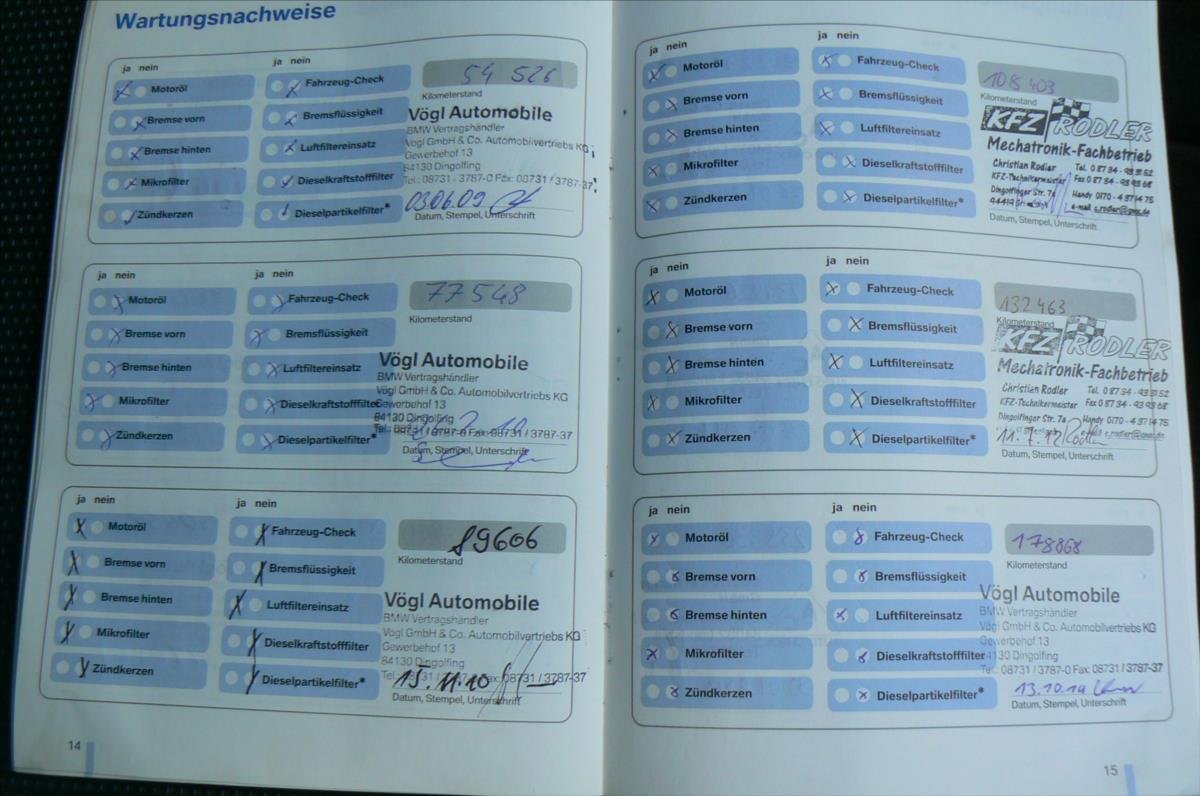 Wartungsnachweise
ja nein ja nein
Motoröl Fahrzeug-Check 54 526
Kilometerstand
Bremse vorn Bremsflüssigkeit Vögl Automobile
BMW Vertragshändler
Bremse hinten Luftfiltereinsatz Vögl GmbH & Co. Automobilvertriebs KG
Gewerbehof 13
84130 Dingolfing
Mikrofilter Dieselkraftstofffilter Tel.: 08731 - 3787-0 Fax: 08731 / 3787-37
03.06.09
Zündkerzen Dieselpartikelfilter* Datum, Stempel, Unterschrift
ja nein ja nein
Motoröl Fahrzeug-Check 77 548
Kilometerstand
Bremse vorn Bremsflüssigkeit
Vögl Automobile
Bremse hinten Luftfiltereinsatz BMW Vertragshändler
Vögl GmbH & Co. Automobilvertriebs KG
Mikrofilter Dieselkraftstofffilter Gewerbehof 13
84130 Dingolfing
Zündkerzen Dieselpartikelfilter* Tel.: 08731 / 3787-0 Fax: 08731 / 3787-37
Datum, Stempel, Unterschrift
ja nein ja nein
Motoröl Fahrzeug-Check 89606
Kilometerstand
Bremse vorn Bremsflüssigkeit
Bremse hinten Luftfiltereinsatz Vögl Automobile
BMW Vertragshändler
Vögl GmbH & Co. Automobilvertriebs KG
Mikrofilter Dieselkraftstofffilter Gewerbehof 13
84130 Dingolfing
Zündkerzen Dieselpartikelfilter* Tel.: 08731 / 3787-0 Fax: 08731 / 3787-37
15.11.10
Datum, Stempel, Unterschrift
14
ja nein ja nein
Motoröl Fahrzeug-Check 108 403
Kilometerstand
Bremse vorn Bremsflüssigkeit KFZ RODLER
Bremse hinten Luftfiltereinsatz Mechatronik-Fachbetrieb
Mikrofilter Dieselkraftstofffilter Christian Rodler Tel. 0 87 34 - 93 31 52
KFZ-Technikermeister Fax 0 87 34 - 93 93 68
Zündkerzen Dieselpartikelfilter* Dingolfinger Str. 7a Handy 0170 - 4 37 14 75
94419 e-mail c.rodler@gmx.de
Datum, Stempel, Unterschrift
ja nein ja nein
Motoröl Fahrzeug-Check 132 463
Kilometerstand
Bremse vorn Bremsflüssigkeit KFZ RODLER
Bremse hinten Luftfiltereinsatz Mechatronik-Fachbetrieb
Mikrofilter Dieselkraftstofffilter Christian Rodler Tel. 0 87 34 - 93 31 52
KFZ-Technikermeister Fax 0 87 34 - 93 93 68
Zündkerzen Dieselpartikelfilter* Dingolfinger Str. 7a Handy 0170 - 4 37 14 75
11.7.12 Rodler c.rodler@gmx.de
Datum, Stempel, Unterschrift
ja nein ja nein
Motoröl Fahrzeug-Check 178868
Kilometerstand
Bremse vorn Bremsflüssigkeit Vögl Automobile
BMW Vertragshändler
Bremse hinten Luftfiltereinsatz Vögl GmbH & Co. Automobilvertriebs KG
Gewerbehof 13
Mikrofilter Dieselkraftstofffilter 84130 Dingolfing
Tel.: 08731 / 3787-0 Fax: 08731 / 3787-37
Zündkerzen Dieselpartikelfilter* 13.10.14
Datum, Stempel, Unterschrift
15